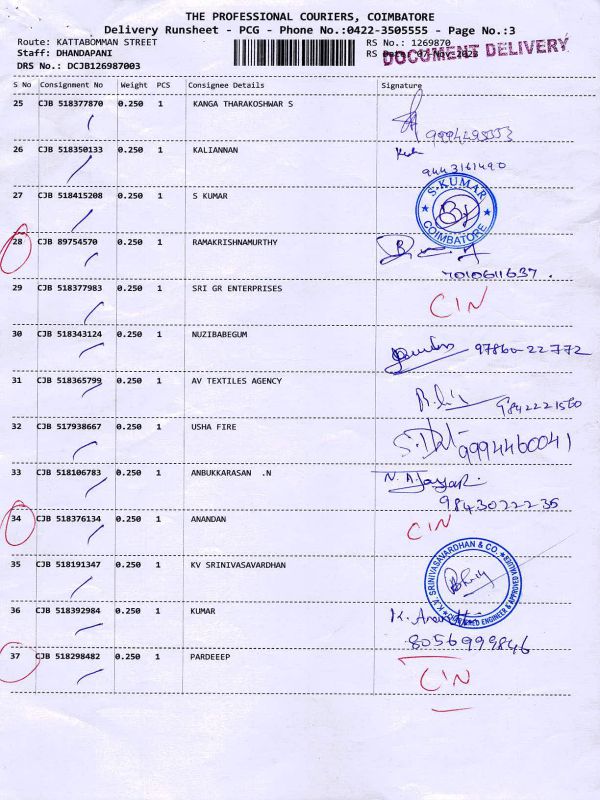 THE PROFESSIONAL COURIERS, COIMBATORE
Delivery Runsheet - PCG - Phone No.:0422-3505555 - Page No.:3
Route: KATTABOMMAN STREET RS No.: 1269870
Staff: DHANDAPANI RS
DOCUMENT DELIVERY
DRS No.: DCJB126987003
S No Consignment No Weight PCS Consignee Details Signature
25 CJB 518377870 0.250 1 KANGA THARAKOSHWAR S
26 CJB 518350133 0.250 1 KALIANNAN
9443161490
27 CJB 518415208 0.250 1 S KUMAR
S-KUMAR
COIMBATORE
28 CJB 89754570 0.250 1 RAMAKRISHNAMURTHY
7010611637.
29 CJB 518377983 0.250 1 SRI GR ENTERPRISES CIN
30 CJB 518343124 0.250 1 NUZIBABEGUM
97860-22772
31 CJB 518365799 0.250 1 AV TEXTILES AGENCY
9842221560
32 CJB 517938667 0.250 1 USHA FIRE
9994460041
33 CJB 518106783 0.250 1 ANBUKKARASAN .N
9843022235
34 CJB 518376134 0.250 1 ANANDAN CIN
35 CJB 518191347 0.250 1 KV SRINIVASAVARDHAN
K.V. SRINIVASAVARDHAN & CO.
CHARTERED ENGINEER & APPROVED VALUER
36 CJB 518392984 0.250 1 KUMAR
8056999846
37 CJB 518298482 0.250 1 PARDEEEP CIN